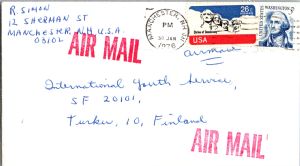 R. SIMON
12 SHERMAN ST
MANCHESTER, N.H. U.S.A.
03102
AIR MAIL
MANCHESTER, NH
PM
30 JAN
1976
26c
USA
WASHINGTON
5c
airmail
International Youth Service,
SF 20101,
Turku, 10, Finland
AIR MAIL